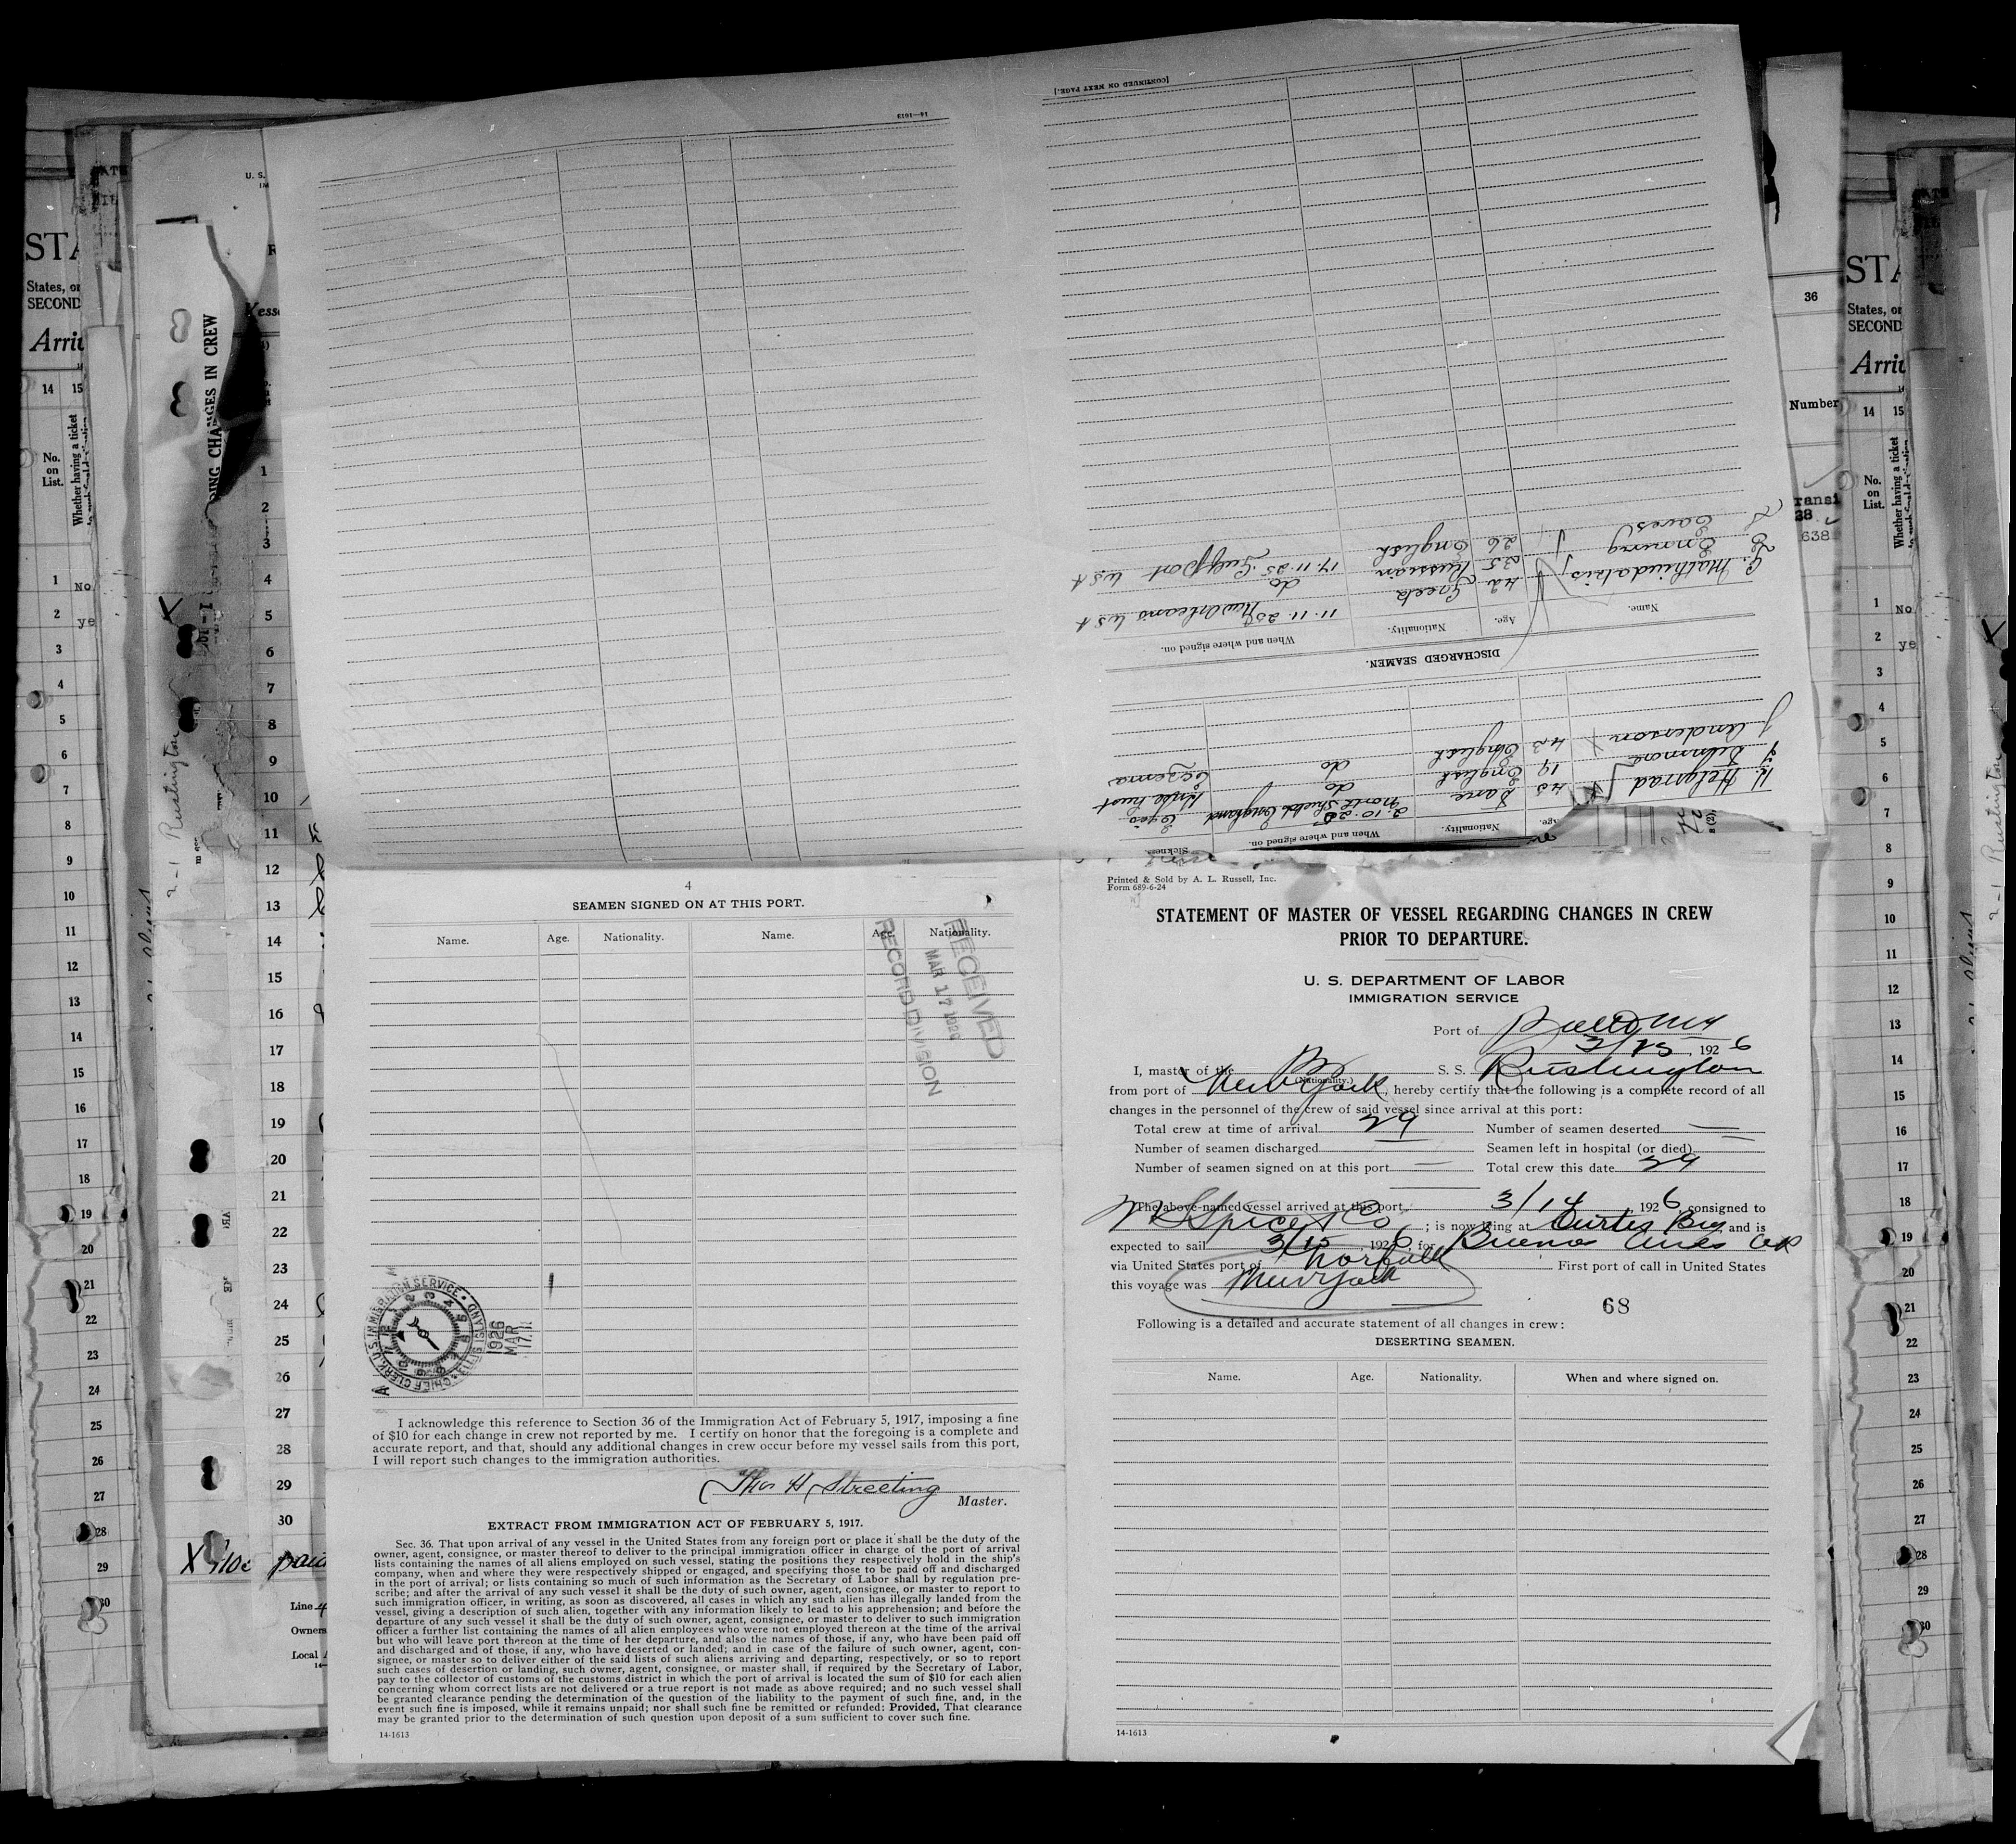 [CONTINUED ON NEXT PAGE.]
14—1613
DISCHARGED SEAMEN.
Name. Age. Nationality. When and where signed on.
C. Mathiudakis 42 Greek 11.11.25 New Orleans USA
25 Russian do
Eaves 26 English 17.11.25 Gulfport USA
Age. Nationality. When and where signed on. Sickness
H. Helgnad 45 Dane 2.10.25 North Shields England
19 English do
J Anderson 43 English do Eczema
STA
States, or
SECOND
Arri
14 15
No.
on
List.
Whether having a ticket
1 No
2 ye
3
4
5
6
7
8
9
10
11
12
13
14
15
16
17
18
19
20
21
22
23
24
25
26
27
28
29
30
DING CHANGES IN CREW
Rustington
U. S.
IM
R
Vesse
1
2
3
4
5
6
7
8
9
10
11
12
13
14
15
16
17
18
19
20
21
22
23
24
25
26
27
28
29
30
X paid
Line 4
Owners
Local A
4
SEAMEN SIGNED ON AT THIS PORT.
Name. Age. Nationality. Name. Age. Nationality.
RECEIVED
MAR 17 1926
RECORD DIVISION
CHIEF CLERK U.S. IMMIGRATION SERVICE • ELLIS ISLAND •
1926
MAR
17
I acknowledge this reference to Section 36 of the Immigration Act of February 5, 1917, imposing a fine
of $10 for each change in crew not reported by me. I certify on honor that the foregoing is a complete and
accurate report, and that, should any additional changes in crew occur before my vessel sails from this port,
I will report such changes to the immigration authorities.
Thos H Streeting
Master.
EXTRACT FROM IMMIGRATION ACT OF FEBRUARY 5, 1917.
Sec. 36. That upon arrival of any vessel in the United States from any foreign port or place it shall be the duty of the
owner, agent, consignee, or master thereof to deliver to the principal immigration officer in charge of the port of arrival
lists containing the names of all aliens employed on such vessel, stating the positions they respectively hold in the ship's
company, when and where they were respectively shipped or engaged, and specifying those to be paid off and discharged
in the port of arrival; or lists containing so much of such information as the Secretary of Labor shall by regulation pre-
scribe; and after the arrival of any such vessel it shall be the duty of such owner, agent, consignee, or master to report to
such immigration officer, in writing, as soon as discovered, all cases in which any such alien has illegally landed from the
vessel, giving a description of such alien, together with any information likely to lead to his apprehension; and before the
departure of any such vessel it shall be the duty of such owner, agent, consignee, or master to deliver to such immigration
officer a further list containing the names of all alien employees who were not employed thereon at the time of the arrival
but who will leave port thereon at the time of her departure, and also the names of those, if any, who have been paid off
and discharged and of those, if any, who have deserted or landed; and in case of the failure of such owner, agent, con-
signee, or master so to deliver either of the said lists of such aliens arriving and departing, respectively, or so to report
such cases of desertion or landing, such owner, agent, consignee, or master shall, if required by the Secretary of Labor,
pay to the collector of customs of the customs district in which the port of arrival is located the sum of $10 for each alien
concerning whom correct lists are not delivered or a true report is not made as above required; and no such vessel shall
be granted clearance pending the determination of the question of the liability to the payment of such fine, and, in the
event such fine is imposed, while it remains unpaid; nor shall such fine be remitted or refunded: Provided, That clearance
may be granted prior to the determination of such question upon deposit of a sum sufficient to cover such fine.
14-1613
Printed & Sold by A. L. Russell, Inc.
Form 689-6-24
STATEMENT OF MASTER OF VESSEL REGARDING CHANGES IN CREW
PRIOR TO DEPARTURE.
U. S. DEPARTMENT OF LABOR
IMMIGRATION SERVICE
Port of
3/15, 1926
I, master of the Br S. S. Rustington
(Nationality.)
from port of New York, hereby certify that the following is a complete record of all
changes in the personnel of the crew of said vessel since arrival at this port:
Total crew at time of arrival 29 Number of seamen deserted —
Number of seamen discharged — Seamen left in hospital (or died) —
Number of seamen signed on at this port — Total crew this date 29
The above-named vessel arrived at this port 3/14, 1926, consigned to
W K Spice & Co; is now lying at Curtis Bay and is
expected to sail 3/15, 1926, for Buenos Aires
via United States port of Norfolk First port of call in United States
this voyage was New York
68
Following is a detailed and accurate statement of all changes in crew:
DESERTING SEAMEN.
Name. Age. Nationality. When and where signed on.
14-1613
36
Number
ransi
38
638
STA
States, or
SECOND
Arri
14 15
No.
on
List.
Whether having a ticket
1 No
2 ye
3
4
5
6
7
8
9
10
11
12
13
14
15
16
17
18
19
20
21
22
23
24
25
26
27
28
29
30
Rustington